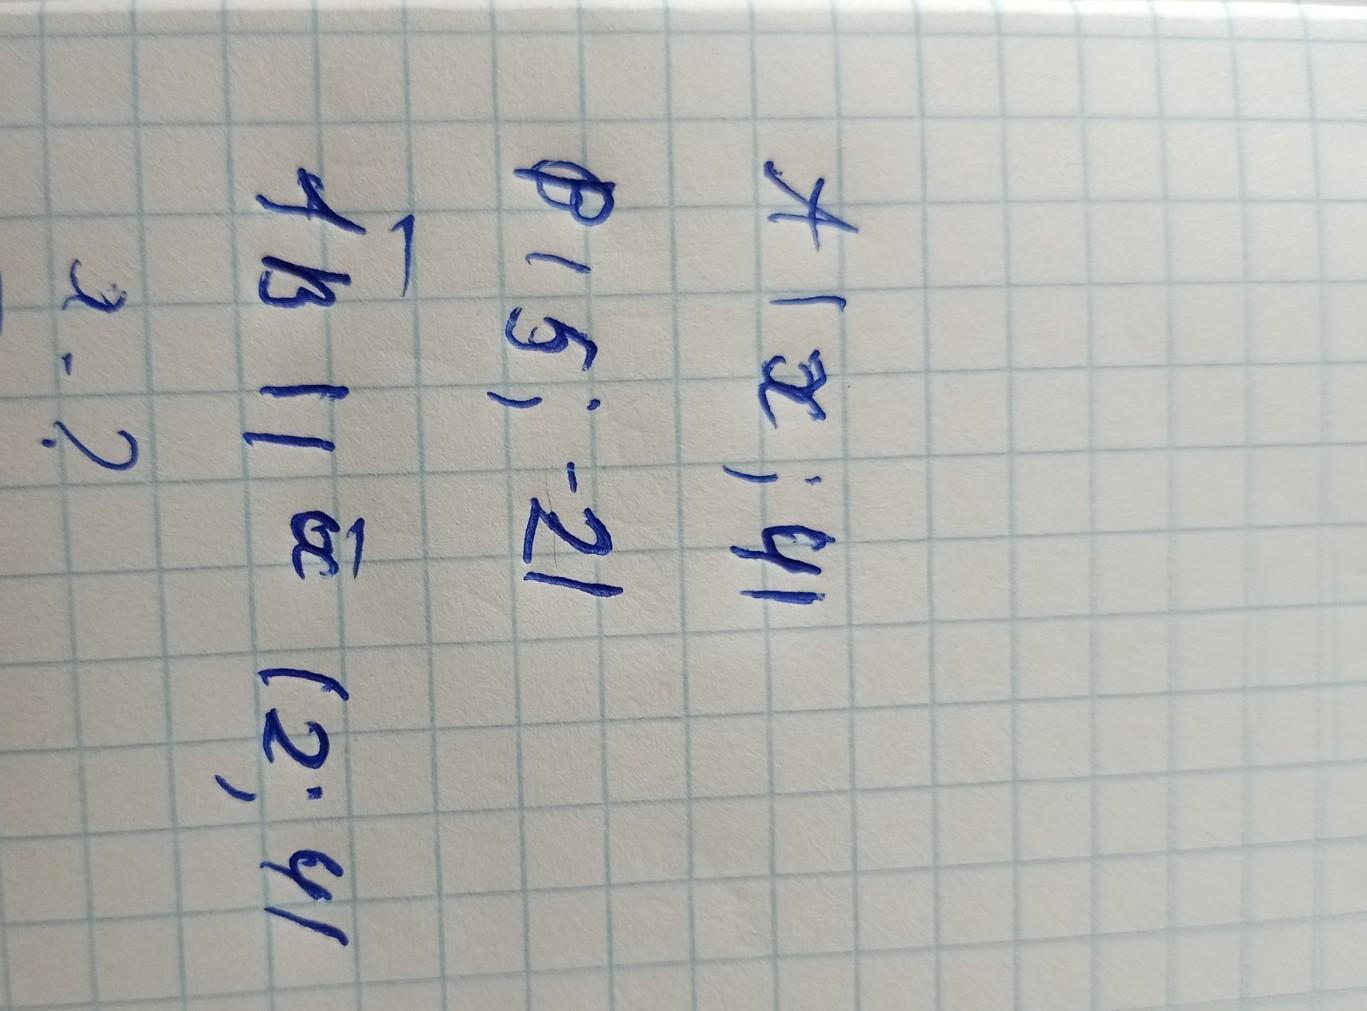 A(x; 4)
B(5; -2)
AB || a (2; 4)
x - ?